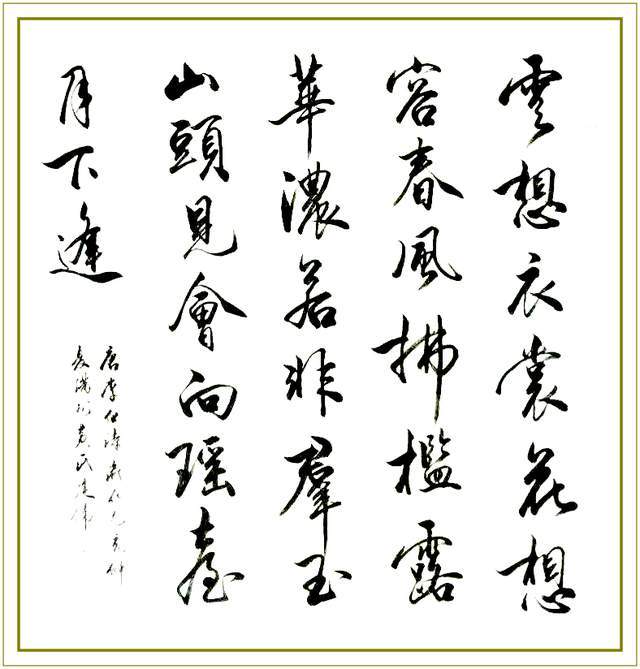 雲想衣裳花想
容春風拂檻露
華濃若非羣玉
山頭見會向瑶臺
月下逢
唐李
黄氏